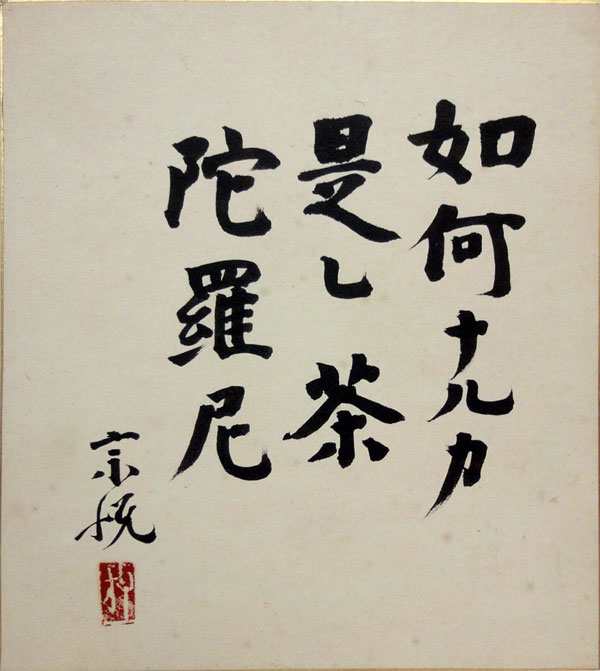 如何ナルカ
是レ茶
陀羅尼
宗悦